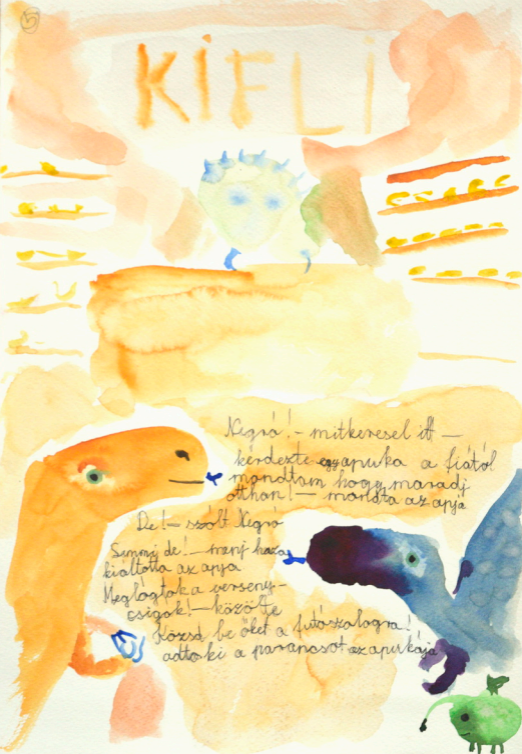 5
KiFLi
Negró! - mitkeresel itt -
kérdezte apuka a fiától
mondtam hogy maradj
otthon! - mordta az apja
De! - szólt Negró
Semmi de! - manj haza
kiáltotta az apja
Meglógtak a verseny-
csigák! - közölte
Közsd be őket a futószalagra!
adta ki a parancsot az apukája